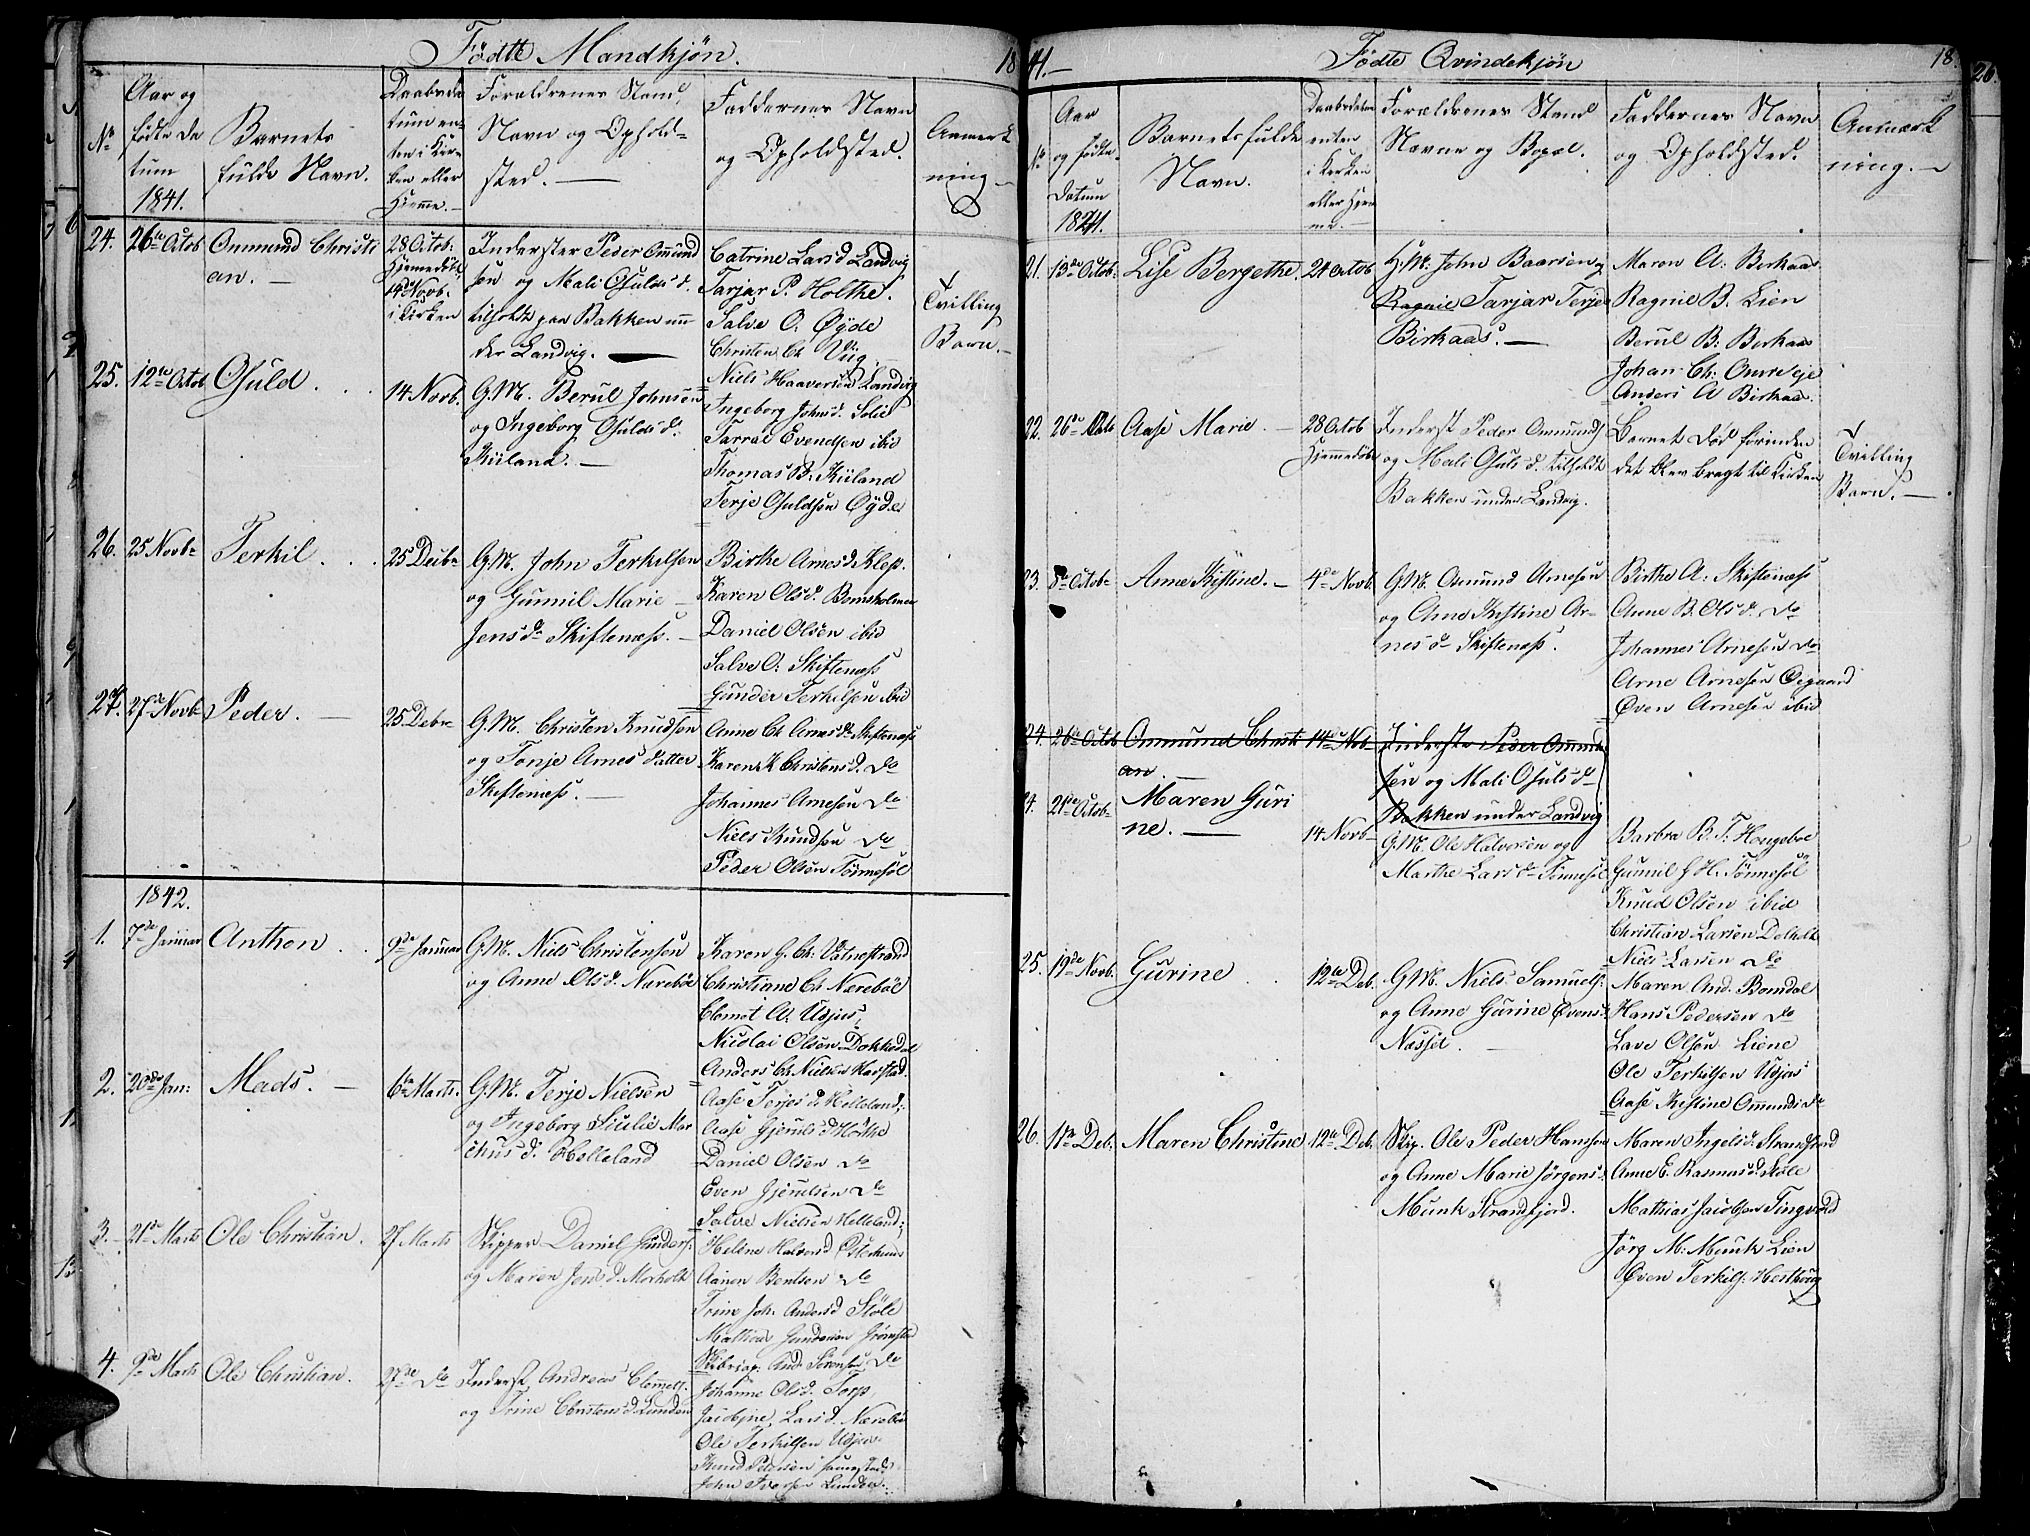 Födte Mandkjøn. 18
No
Aar og
födte Da
tum
1841.
Barnets
fulde Navn.
Daabsda
tum en-
ten i Kir-
ken eller
Hjemme.
Forældrenes Stand,
Navn og Ophold-
sted. —
Faddernes Navn
og Opholdsted.
Anmerk
ning. —
24. 26de Octob Omund Christi
an. —
28 Octob:
Hjemedöbt
14de Novb.
i Kirken
Inderster Peder Omund
sen og Mali Osulds d.
tilholdt paa Bakken un
der Landvig. —
Catrine Lars d Landvig
Tarjar P. Holthe.
Salve O. Øyde
Christen Ch Viig
Niels Haaversen Landvig
Tvilling
Barn. —
25. 12te Octob Osuld . . .
14 Novb.
G.M. Berul Johnsen
og Ingeborg Osulds d.
Kuland. —
Ingeborg Johns d.
Tarral Evendsen ibid
Thomas B. Kuland
Terje Osuldsen Øyde
26. 25 Novbr Terkil . . .
25 Decbr
G.M. John Terkelsen
og Gunnil Marie
Jens dr Skiftenæss. —
Birthe Arnes d Klep.
Karen Ols d. Bomsholmen
Daniel Olsen ibid
Salve O: Skiftenæss
Gunder Terkilsen ibid
27. 27de Novb Peder. —
25 Debr
G.M. Christen Knudsen
og Tonje Arnes datter
Skiftenæss. —
Anne Ch Arnes d. Skiftenæss
Karen K Christens d. Do
Johannes Arnesen Do
Niels Knudsen Do
Peder Olsen Tønnesöl
1842.
1. 7de Januar Anthon . .
9de Januar
G.M. Niels Christensen
og Anne Ols d. Næreböe
Karen G. Ch. Vatnestrand
Christiane Ch Næreböe
Clemet A. Udjus
Nicolai Olsen Dokkedal
Anders Ch Nielsen
2. 20de Jan: Mads. —
6te Marts.
G.M. Terje Nielsen
og Ingeborg Giulie Mar
chus d. Helleland
Aase Terjes d. Helleland
Aase Gjeruls d Holthe
Daniel Olsen Do
Even Gjerulsen Do
Salve Nielsen Helleland
3. 21de Marts Ole Christian.
27 Marts
Skipper Daniel Gunders.
og Maren Jens d. Morholt
Helene Halvors d
Aanen Bentsen Do
Trine Joh. Anders d Stöle
Mathias Gundersen Grømstad
And Sörensen Do
4. 9de Marts Ole Christian.
27de Do
Inderst Andreas Clemets.
og Trine Christens d. Lunden
Johanne Ols d. Torp
Jacobine Lars d. Nærebö
Ole Terkilsen Udjus
Knud Pedersen
John Iversen Lunden.
41. — Födte Qvindekjön 18
26
No
Aar
og födte
Datum
1841.
Barnets fulde
Navn.
Daabsdatum
enten
i Kirken
eller Hjem
me. —
Forældrenes Stand
Navne og Bopæl.
Faddernes Navn
og Opholdsted.
Anmærk
ning. —
21. 13de Octob. Lise Bergethe.
24 Octob
G.M. John Baarsen og
Ragnil Tarjar Terjes
Birkaas. —
Maren A: Berkaas
Ragnil B. Lien
Berul B: Berkaas
Johan Ch: Omre eje
Anders A Birkaas
22. 26de Octb Aase Marie. —
28 Octob
Hjemmedöbt
Inderst Peder Omunds
og Mali Osuls d. tilholdt
Bakken under Landvig.
Barnet död forinden
det blev bragt til Kirken
Tvilling
Barn. —
23. 8de Octobr Anne Kistine. —
4de Novb.
G.M. Omund Arnesen
og Anne Kistine Ar-
nes dr Skiftenæss.
Birthe A: Skiftenæss
Anne B. Ols d. Do
Johannes Arnesen Do
Arne Arnesen Øegaard
Even Arnesen ibid
24. 26de Octob Ommund Christi
an. —
14de Nov.
Inderste Peder Omund
sen og Mali Osuls d
Bakken under Landvig
24. 21de Octob Maren Guri
ne. —
14 Novb
G.M. Ole Halvorsen og
Marthe Lars dr Tönnesöl
Barbra B. T: Hongeboe
Gunnil G H. Tönnesöl
Knud Olsen ibid
Christian Larsen Dolholt
Niels Larsen Do
25. 19de Novb. Gurine . .
12te Deb.
G.M. Niels Samuels.
og Anne Gurine Evens d.
Næsset. —
Maren And. Bomdal
Hans Pedersen Do
Lave Olsen Liene
Ole Terkilsen Udjus
Aase Kistine Ommunds Do
26. 11te Deb. Maren Christine
12te Deb.
Skip. Ole Peder Hansen
og Anne Marie Jörgens d.
Munk Strandfjord.
Maren Ingels d. Strandfjord
Anne E. Rasmus d. Stöle
Mathias Jacobsen Tingvold
Jörg M: Munk Lien
Even Terkils. Hesthaug